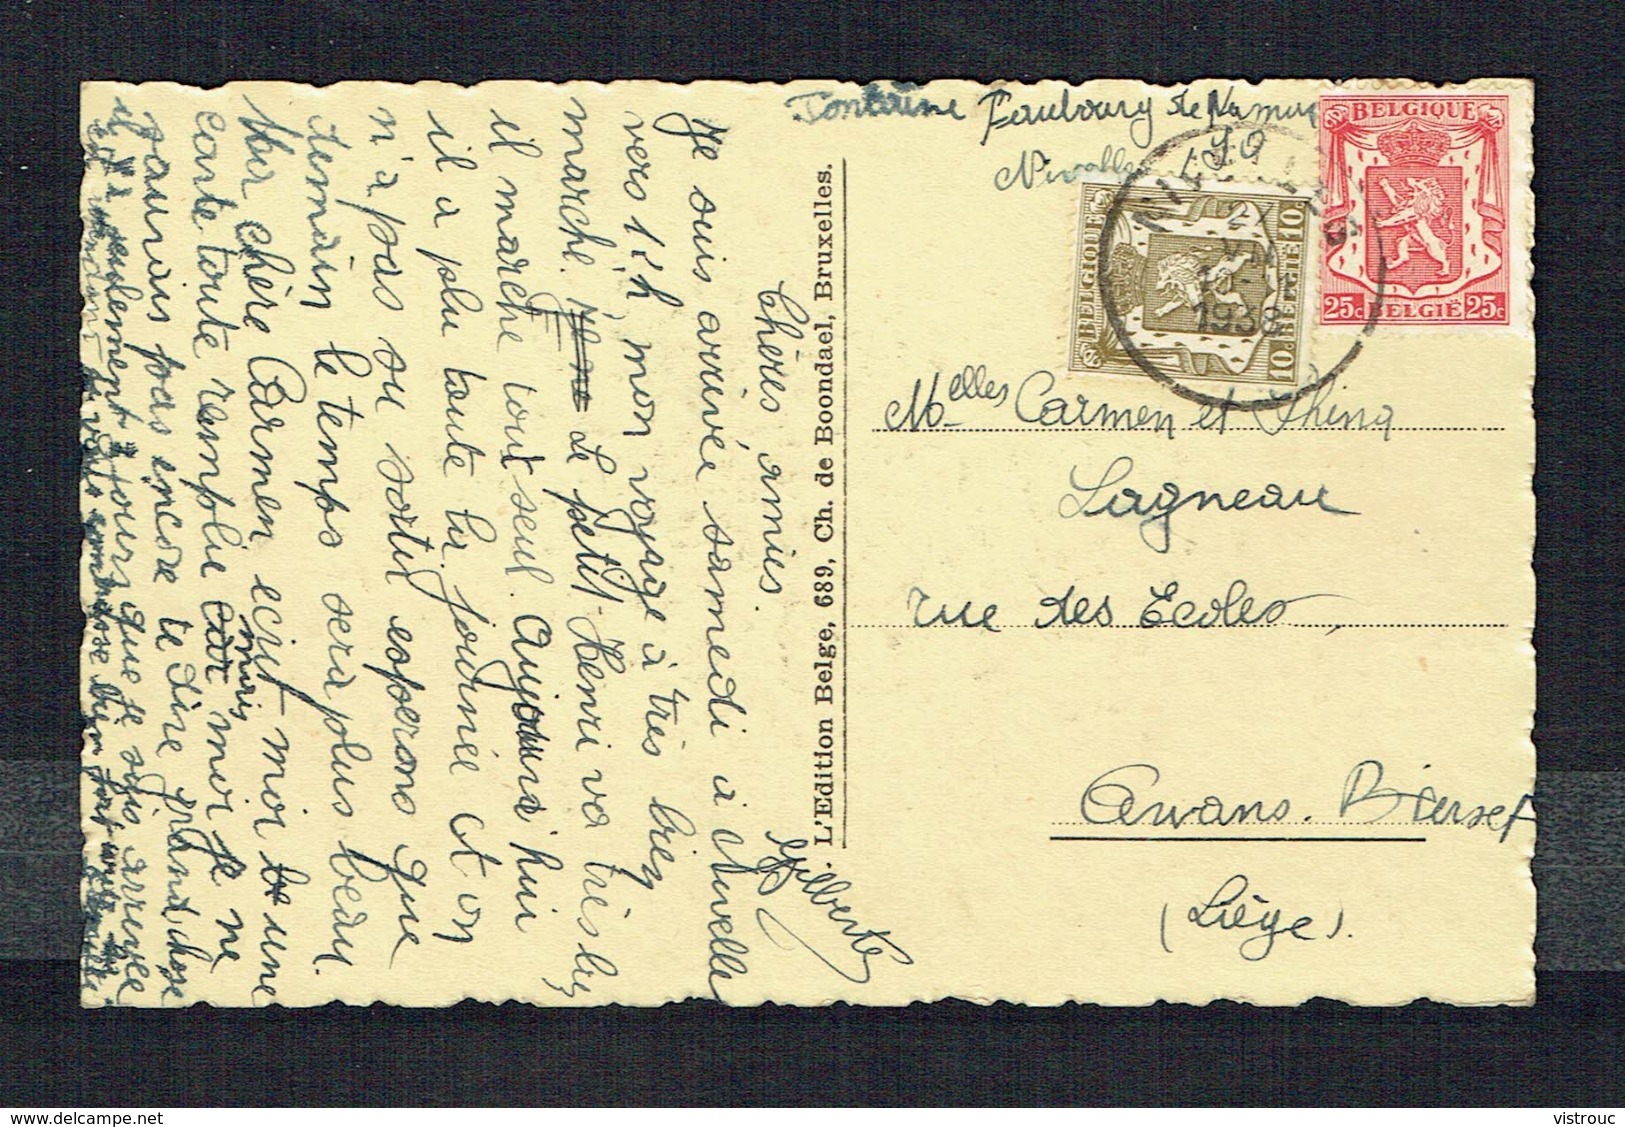 Fontaine Faubourg de Namur
10
Nivelle
BELGIQUE
25c BELGIË 25c
BELGIQUE 10
10c BELGIË
1938
Melles Carmen et Thina
Lagneau
rue des Ecoles,
Awans. Bierset
(Liége).
L'Edition Belge, 689, Ch. de Boondael, Bruxelles.
Chères amies.
Je suis arrivée samedi à Nivelle
vers 11h, mon voyage à très bien
marché. Le petit Henri va très bien
il marche tout seul. Aujourd'hui
il a plu toute la journée et on
n'a pas su sortir esperons que
demain le temps sera plus beau.
Ma chère Carmen ecrit moi une
carte toute remplie mais moi je ne
saurais pas encore te dire grand chose
il y a seulement 2 jours que je suis arrivée
vous embrasse bien fort
Gilberte
vistrouc © www.delcampe.net